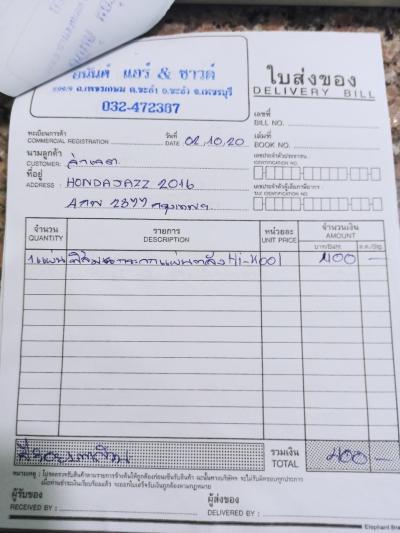 อนันต์ แอร์ & ซาวด์
ถ.เพชรเกษม ต.ชะอำ อ.ชะอำ จ.เพชรบุรี
032-472387
ใบส่งของ
DELIVERY BILL
เลขที่
BILL NO.
ทะเบียนการค้า
COMMERCIAL REGISTRATION
วันที่
DATE 02,10,20
เล่มที่
BOOK NO.
นามลูกค้า
CUSTOMER:
เลขประจำตัวประชาชน
IDENTIFICATION NO.
ที่อยู่
ADDRESS : HONDA JAZZ 2016
เลขประจำตัวผู้เสียภาษีอากร
TAX IDENTIFICATION NO.
2377 กรุงเทพฯ
จำนวน
QUANTITY
รายการ
DESCRIPTION
หน่วยละ
UNIT PRICE
จำนวนเงิน
AMOUNT
บาท/Baht
ส.ต./Stg.
1 แผ่น ฟิล์ม Hi-Kool 400 —
สี่ร้อยบาทถ้วน
รวมเงิน
TOTAL
400 —
ผู้รับของ
RECEIVED BY :
ผู้ส่งของ
DELIVERED BY :